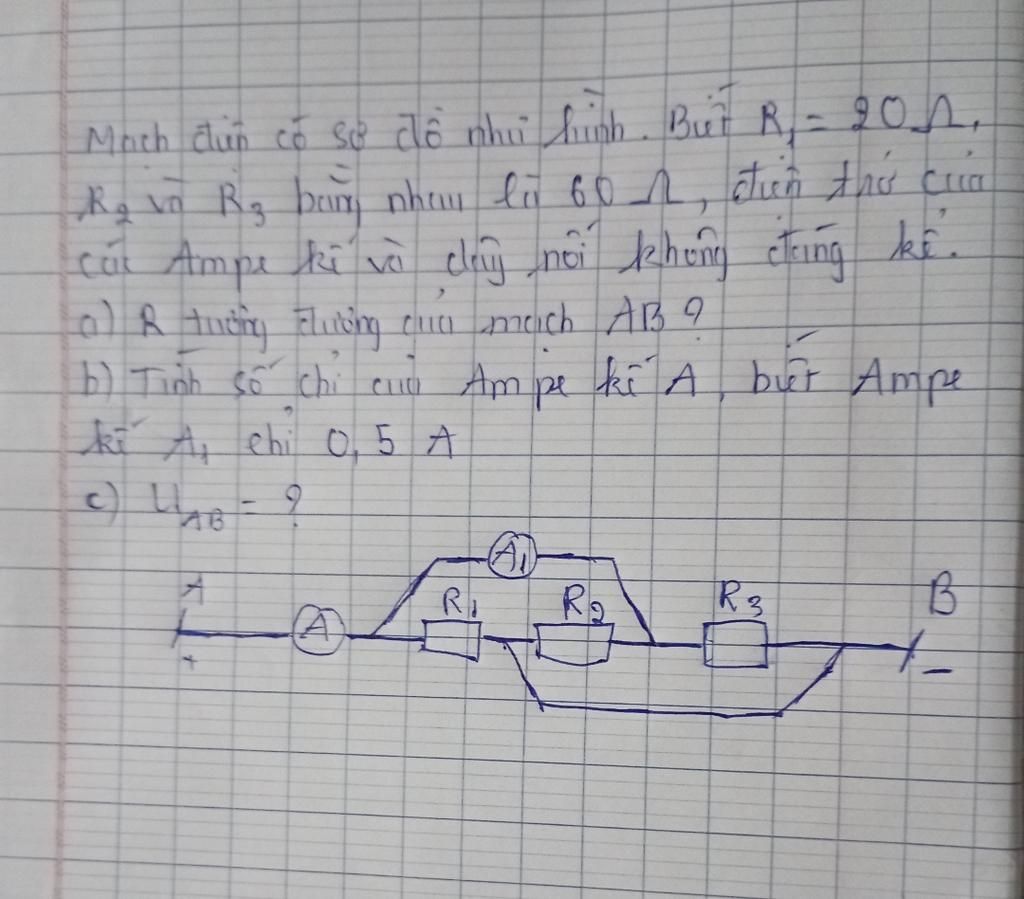 Mạch điện có sơ đồ như hình. Biết R₁ = 20 Ω,
R₂ và R₃ bằng nhau là 60 Ω, điện trở của
các Ampe kế và dây nối không đáng kể.
a) R tương đương của mạch AB?
b) Tính số chỉ của Ampe kế A, biết Ampe
kế A₁ chỉ 0,5 A
c) U_AB = ?
A₁
A R₁ R₂ R₃ B
A
+ −